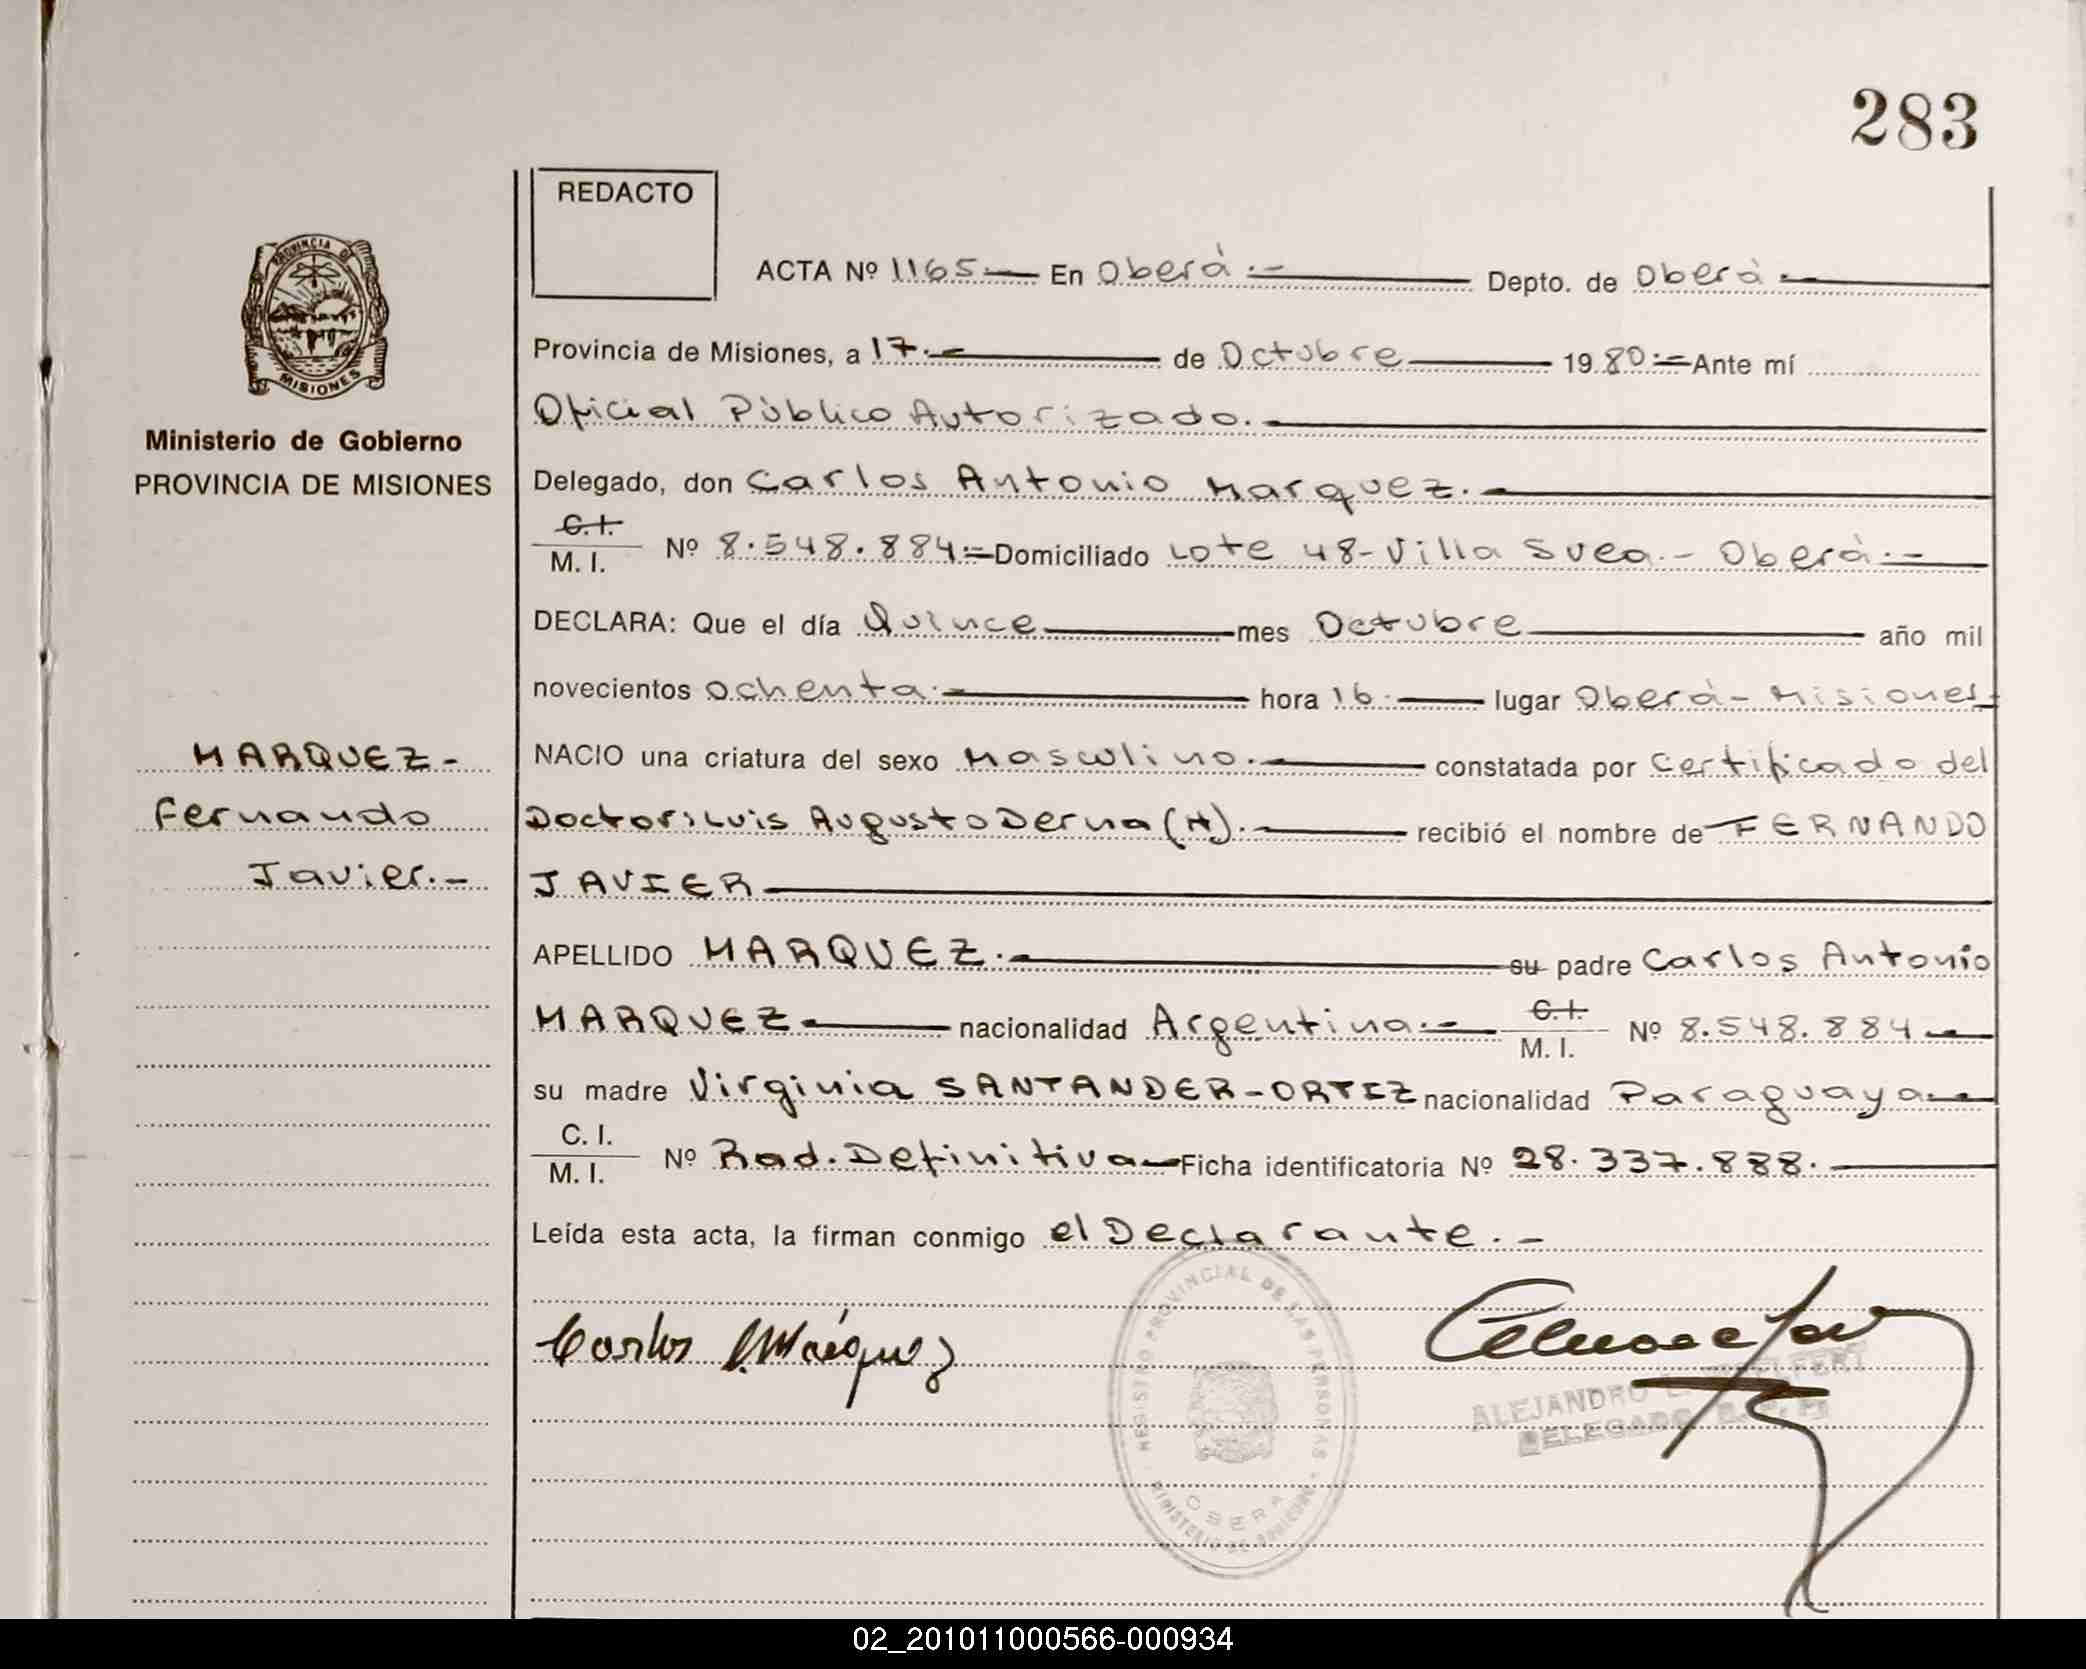 283
REDACTO
ACTA Nº 1165.— En Oberá.— Depto. de Oberá.—
PROVINCIA DE
MISIONES
Provincia de Misiones, a 17.— de Octubre — 1980.— Ante mí
Oficial Público Autorizado.—
Ministerio de Gobierno
PROVINCIA DE MISIONES
Delegado, don Carlos Antonio Marquez.—
C.I. / M. I. Nº 8.548.884.— Domiciliado Lote 48-Villa Svea.- Oberá.—
DECLARA: Que el día Quince — mes Octubre — año mil
novecientos ochenta.— hora 16.— lugar Oberá-Misiones-
MARQUEZ-
Fernando
Javier.-
NACIO una criatura del sexo Masculino.— constatada por Certificado del
Doctor: Luis Augusto Derna (H).— recibió el nombre de FERNANDO
JAVIER —
APELLIDO MARQUEZ.— su padre Carlos Antonio
MARQUEZ — nacionalidad Argentina.— C.I. / M. I. Nº 8.548.884 —
su madre Virginia SANTANDER-ORTIZ nacionalidad Paraguaya —
C. I. / M. I. Nº Rad. Definitiva — Ficha identificatoria Nº 28.337.888.—
Leída esta acta, la firman conmigo el Declarante.-
Carlos A. Márquez
REGISTRO PROVINCIAL DE LAS PERSONAS
MINISTERIO DE GOBIERNO
OBERA
ALEJANDRO
DELEGADO
02_201011000566-000934